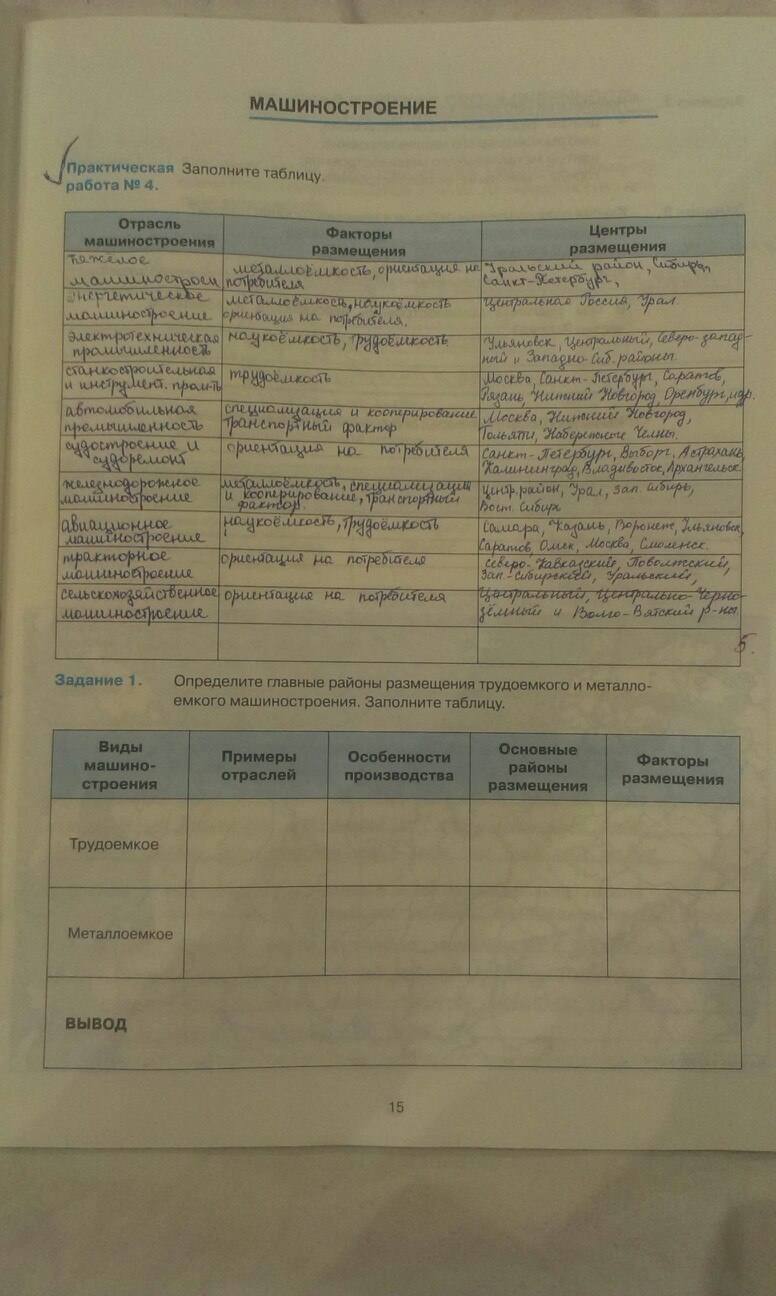 МАШИНОСТРОЕНИЕ
Практическая Заполните таблицу.
работа № 4.
Отрасль машиностроения
Факторы размещения
Центры размещения
тяжелое машиностроен
металлоёмкость, ориентация на потребителя
Уральский район, Сибирь, Санкт-Петербург,
энергетическое машиностроение
металлоёмкость, наукоёмкость
ориентация на потребителя.
Центральная Россия, Урал.
электротехническая промышленность
наукоёмкость, трудоёмкость
Ульяновск, Центральный, Северо-запад-
ный и Западно-Сиб. районы
станкостроительная
и инструмент. пром-ть
трудоёмкость
Москва, Санкт-Петербург, Саратов,
Рязань, Нижний Новгород, Оренбург, и др.
автомобильная
промышленность
специализация и кооперирование
транспортный фактор
Москва, Нижний Новгород,
Тольяти, Набережные Челны.
судостроение и
судоремонт
ориентация на потребителя
Санкт-Петербург, Выборг, Астрахань,
Калининград, Владивосток, Архангельск
железнодорожное
машиностроение
металлоёмкость, специализация
и кооперирование, транспортный
фактор.
Центр. район, Урал, Зап. Сибирь,
Вост. Сибирь
авиационное
машиностроение
наукоёмкость, трудоёмкость
Самара, Казань, Воронеж, Ульяновск,
Саратов, Омск, Москва, Смоленск.
тракторное
машиностроение
ориентация на потребителя
Северо-Кавказский, Поволжский,
Зап.-Сибирский, Уральский,
сельскохозяйственное
машиностроение
ориентация на потребителя
Центральный, Центрально-Черно-
зёмный и Волго-Вятский р-ны.
5.
Задание 1. Определите главные районы размещения трудоемкого и металло-
емкого машиностроения. Заполните таблицу.
Виды
машино-
строения
Примеры
отраслей
Особенности
производства
Основные
районы
размещения
Факторы
размещения
Трудоемкое
Металлоемкое
ВЫВОД
15